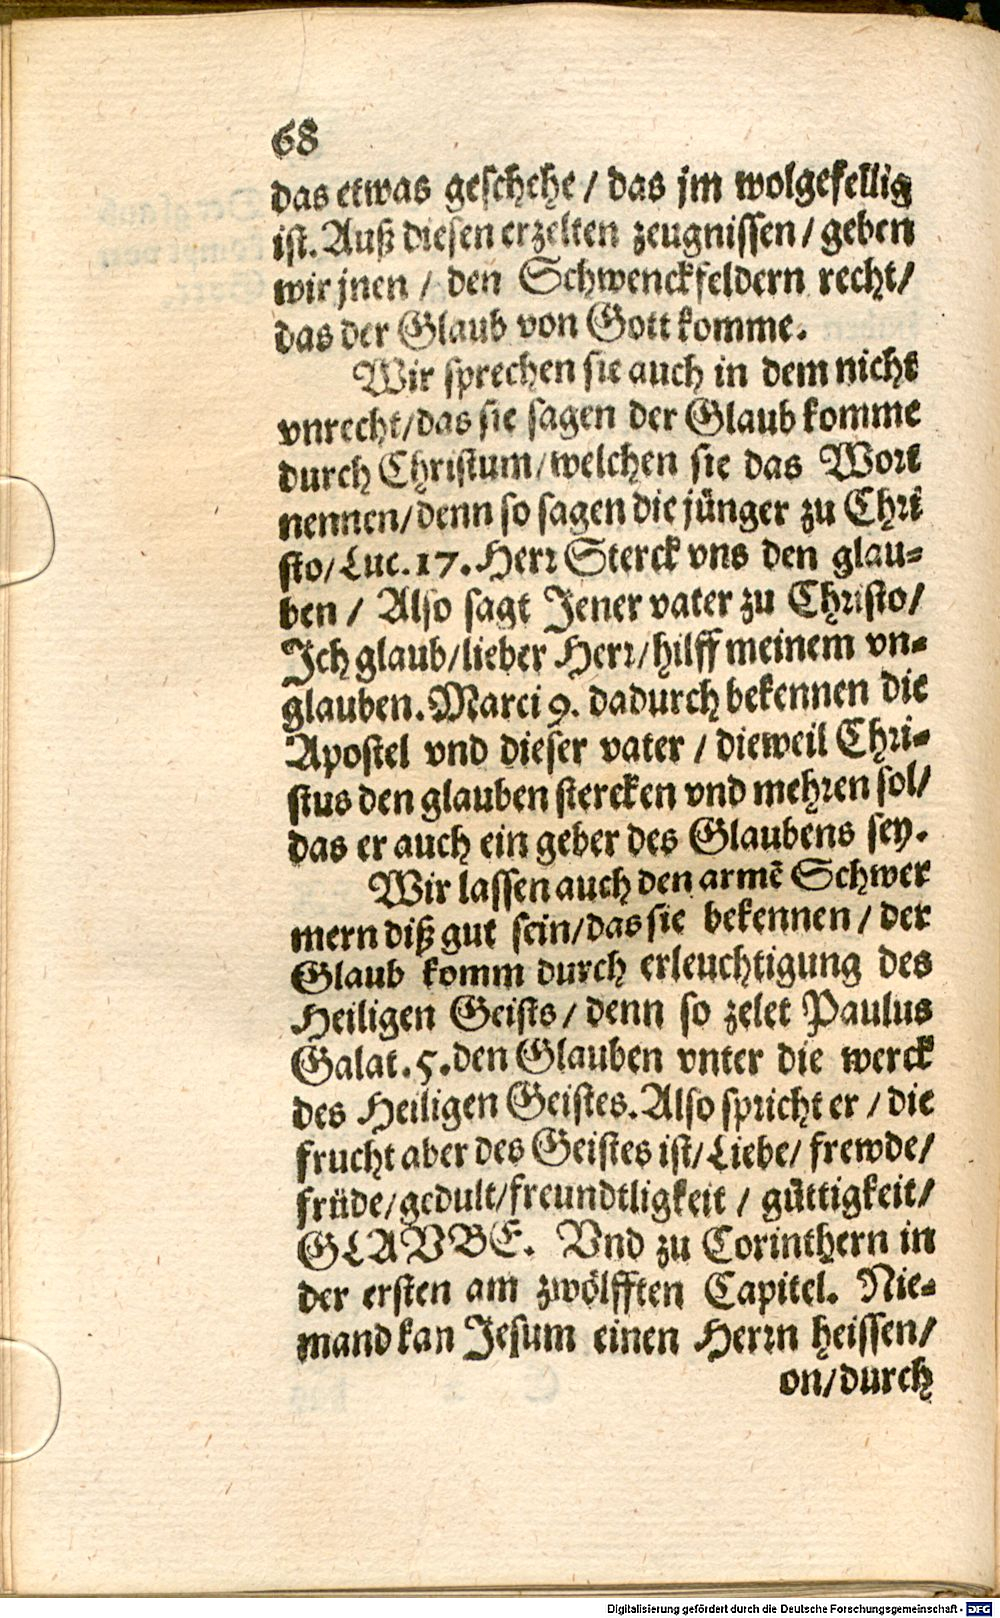 68
das etwas geschehe / das jm wolgefellig
ist. Auß diesen erzelten zeugnissen / geben
wir jnen / den Schwenckfeldern recht /
das der Glaub von Gott komme.
Wir sprechen sie auch in dem nicht
vnrecht / das sie sagen der Glaub komme
durch Christum / welchen sie das Wort
nennen / denn so sagen die jünger zu Chri
sto / Luc. 17. Herr Sterck vns den glau⸗
ben / Also sagt Jener vater zu Christo /
Ich glaub / lieber Herr / hilff meinem vn⸗
glauben. Marci 9. dadurch bekennen die
Apostel vnd dieser vater / dieweil Chri⸗
stus den glauben stercken vnd mehren sol /
das er auch ein geber des Glaubens sey.
Wir lassen auch den armē Schwer
mern diß gut sein / das sie bekennen / der
Glaub komm durch erleuchtigung des
Heiligen Geists / denn so zelet Paulus
Galat. 5. den Glauben vnter die werck
des Heiligen Geistes. Also spricht er / die
frucht aber des Geistes ist / Liebe / frewde /
früde / gedult / freundtligkeit / güttigkeit /
GLAVBE. Vnd zu Corinthern in
der ersten am zwölfften Capitel. Nie⸗
mand kan Jesum einen Herrn heissen /
on / durch
Digitalisierung gefördert durch die Deutsche Forschungsgemeinschaft - DFG